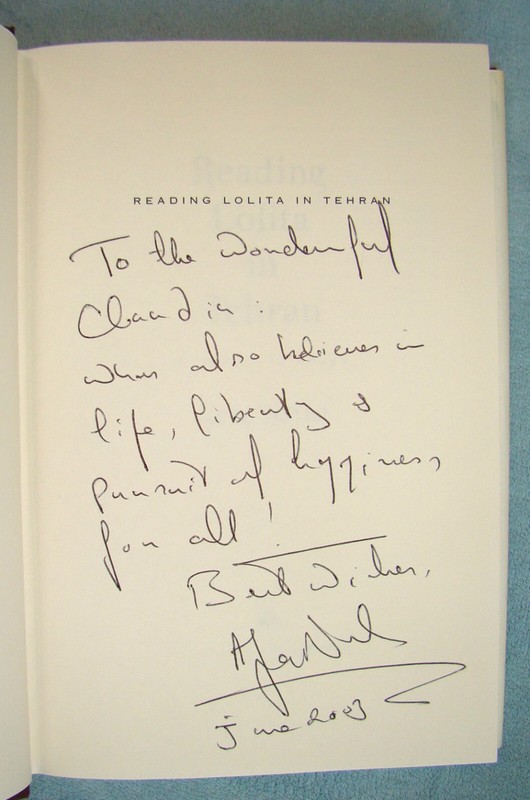 READING LOLITA IN TEHRAN
To the wonderful
Claudia.
who also believes in
life, liberty &
pursuit of happiness
for all!
Best Wishes,
Azar Nafisi
June 2003